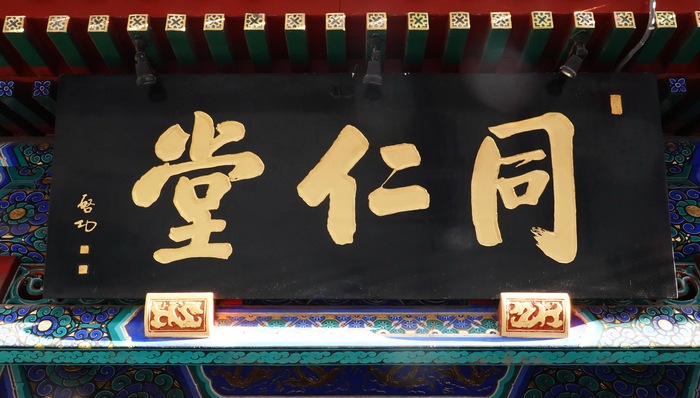 同仁堂
啓功